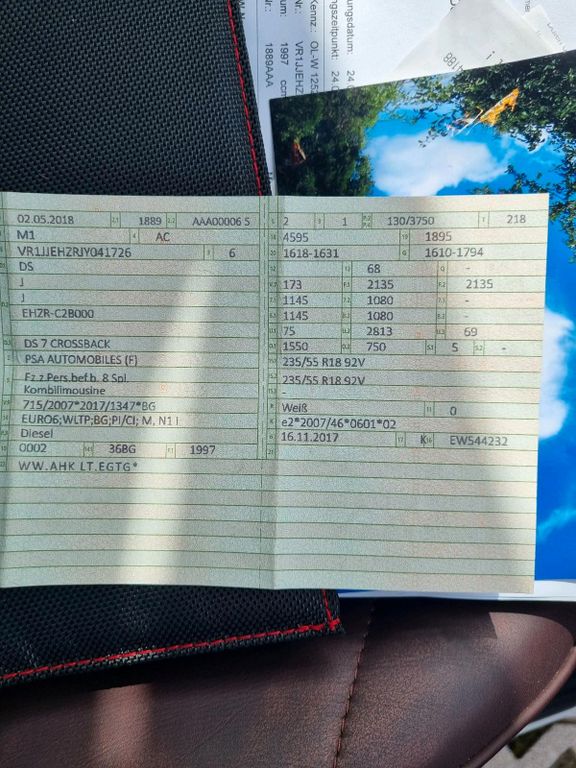 ungsdatum: 24.0
ngszeitpunkt: 24.0
Kennz.: OL-W 1252
Nr.: VR1JJEHZ
atum: 1997 ccm
Nr.: 1889AAA
02.05.2018 2.1 1889 2.2 AAA00006 5
M1 4 AC
VR1JJEHZRJY041726 3 6
DS
J
J
EHZR-C2B000
DS 7 CROSSBACK
PSA AUTOMOBILES (F)
Fz.z.Pers.bef.b. 8 Spl.
Kombilimousine
715/2007*2017/1347*BG
EURO6;WLTP;BG;PI/CI; M, N1 I
Diesel
0002 36BG 1997
WW.AHK LT.EGTG*
2 1 130/3750 T 218
4595 1895
1618-1631 1610-1794
68 -
173 2135 2135
1145 1080 -
1145 1080 -
75 2813 69
1550 750 S.1 5 S.2 -
235/55 R18 92V
235/55 R18 92V
-
Weiß 11 0
e2*2007/46*0601*02
16.11.2017 17 K 16 EW544232